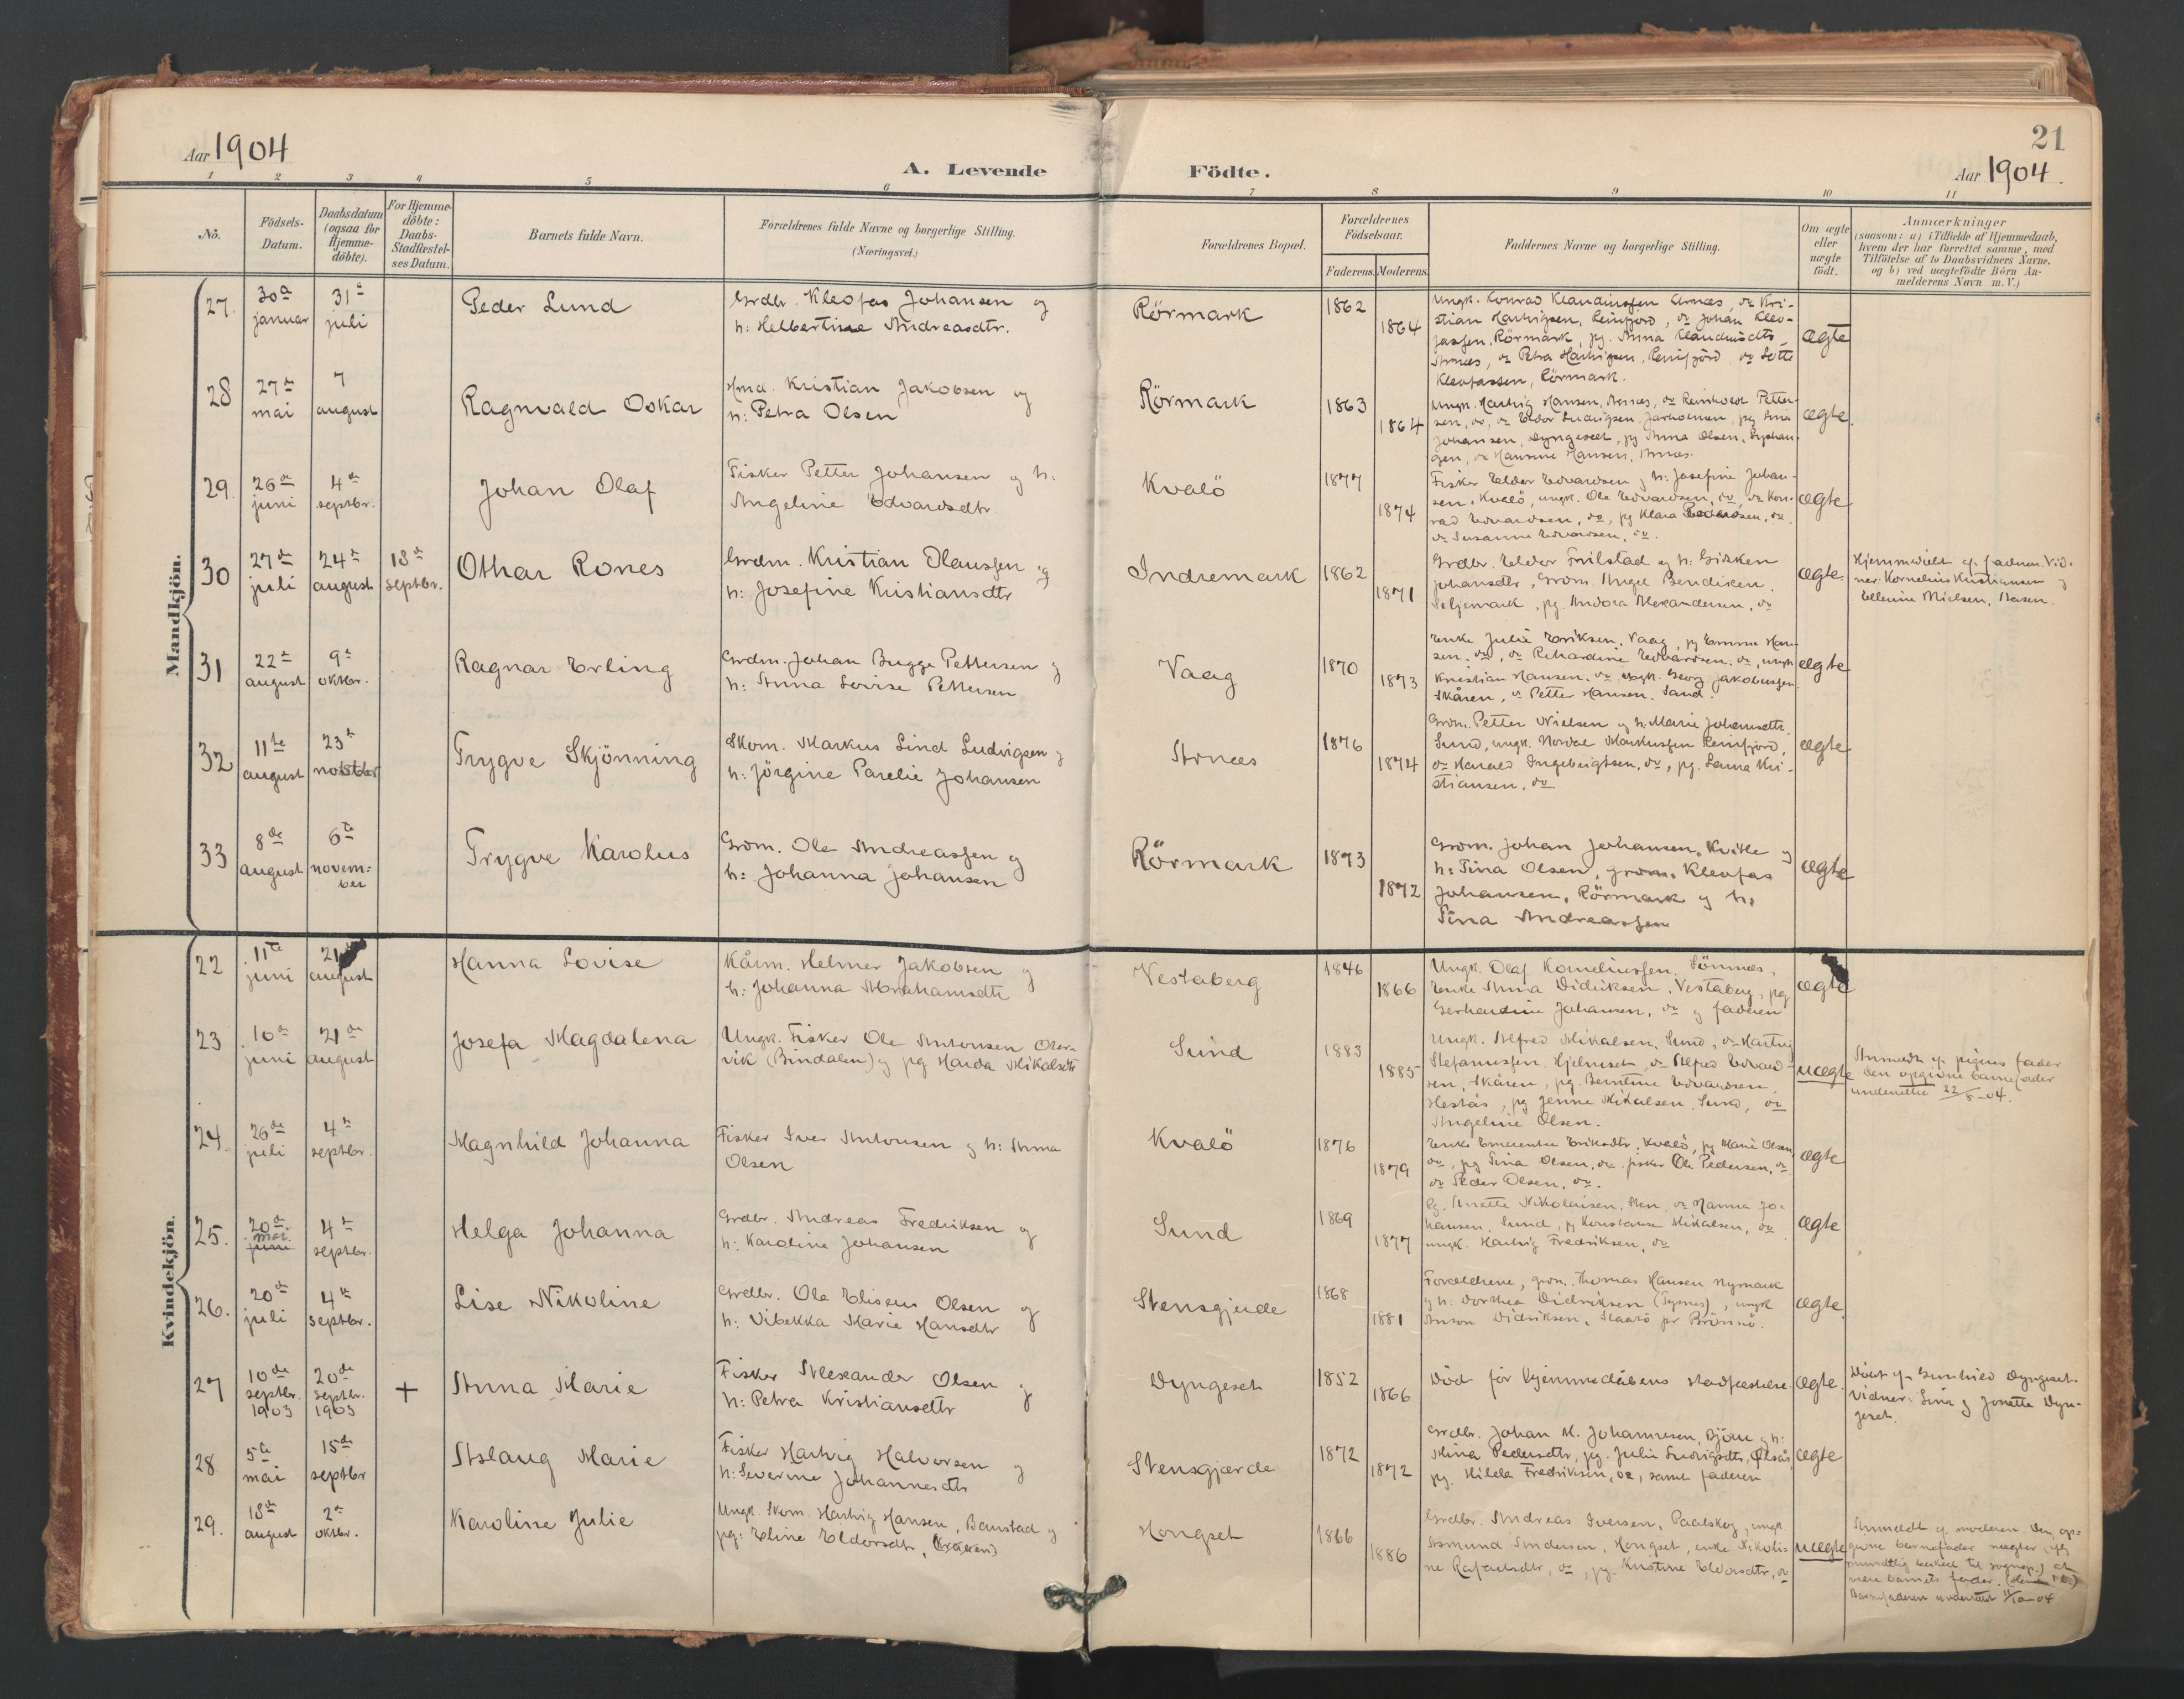 Aar 1904
A. Levende Födte.
21
Aar 1904.
1 2 3 4 5 6 7 8 9 10 11
No. Födsels-Datum. Daabsdatum (ogsaa for Hjemme-döbte). For Hjemme-döbte: Daabs-Stadfæstel-ses Datum. Barnets fulde Navn. Forældrenes fulde Navne og borgerlige Stilling. (Næringsvei.) Forældrenes Bopæl. Forældrenes Födselsaar. Faderens. Moderens. Faddernes Navne og borgerlige Stilling. Om ægte eller uægte födt. Anmærkninger (saasom: a) i Tilfælde af Hjemmedaab, hvem der har forrettet samme, med Tilföielse af to Daabsvidners Navne, og b) ved uægtefödte Börn An-melderens Navn m. V.)
Mandkjön.
27. 30te januar 31te juli Peder Lund
Grdbr. Kleofas Johansen og
h: Helbertine Andreasdtr.
Rörmark 1862 1864
Ungk. Konrad Klaudiussen Årnæs, do Kri-
stian Hartvigsen, Reinfjord, do Johan Kleo-
fassen, Rörmark, pg. Anna Klaudiusdtr.
Årnæs, do Petra Hartvigsen, Reinfjord, do Lotte
Kleofassen, Rörmark.
ægte
28 27de mai 7 august Ragnvald Oskar
Hmd. Kristian Jakobsen og
h: Petra Olsen
Rörmark 1863 1864
Ungk. Hartvig Hansen, Årnæs, do Reinholdt Petter-
sen, do, do Eldor Ludvigsen, pg Lina
Johansen, Dyngeset, pg Anna Olsen,
do Hansine Hansen, Årnæs.
ægte
29. 26de juni 4de septbr. Johan Olaf
Fisker Petter Johansen og h:
Angeline Edvardsdtr
Kvalö 1877 1874
Fisker Eldor Edvardsen og h: Josefine Johan-
sen, Kvalö, ungk. Ole Edvardsen, do, do Kon-
rad Edvardsen, do, pg Klara Pedersen, do
do Susanne Edvardsen, do.
ægte
30 27de juli 24de august 18de septbr. Othar Rones
Grdm. Kristian Olaussen og
h: Josefine Kristiansdtr
Indremark 1862 1871
Grdbr. Eldor Frilstad og h: Birken
Johansdtr, Grdm. Angel Bendiksen
Seljemark, pg. Andora Alexandersen, do
ægte
Hjemmedöbt af faderen. Vid-
ner: Kornelius Kristiansen og
Ellenine Nielsen, Aasen.
31 22de august 9de oktbr. Ragnar Erling
Grdm. Johan Bugge Pettersen og
h: Anna Lovise Pettersen
Vaag 1870 1873
Enke Julie Eriksen, Vaag, pg Emma Han-
sen, do, do Rikardine Edvardsen, do, ungk
Kristian Hansen, do Ungk. Georg Jakobussen
Skåren, do Petter Hansen, Sand.
ægte
32 11te august 23de Trygve Skjönning
Skom. Markus Lind Ludvigsen og
h: Jörgine Parelie Johansen
Årnæs 1876 1874
Grdm. Petter Nielsen og h: Marie Johansdtr.
Sund, ungk. Nordal Markussen Reinfjord,
do Harald Ingebrigtsen, do, pg. Laura Kri-
stiansen, do
ægte
33 8de august 6te novem-
ber Trygve Karolus
Grdm. Ole Andreassen og
h: Johanna Johansen
Rörmark 1873 1872
Grdm. Johan Johansen, Kvitle og
h: Tina Olsen, grdm. Kleofas
Johansen, Rörmark og h:
Tina Andreassen
ægte
Kvindekjön.
22 11te juni 21 august Hanna Lovise
Kårm. Helmer Jakobsen og
h: Johanna Abrahamsdtr
Vestaberg 1846 1866
Ungk. Olaf Korneliussen, Sömnes,
Enke Anna Didriksen, Vestaberg, pg
Gerhardine Johansen, do og faderen
ægte
23 10de juni 21de august Josefa Magdalena
Ungk. Fisker Ole Antonsen Oter-
vik (Bindalen) og pg Handa Mikalsdtr
Sund 1883 1885
Ungk. Alfred Mikalsen, Sund, do Hartvig
Stefanussen, Hjelmset, do Alfred Edvard-
sen, Skåren, pg. Berntine Edvardsen
Hestås, pg Jenne Mikalsen, Sund, do
Angeline Olsen.
uægte
Anmeldt af pigens fader
den opgivne barnefader
underrettet 22/8-04.
24. 26de juli 4de septbr. Magnhild Johanna
Fisker Iver Antonsen og h: Anna
Olsen
Kvalö 1876 1879
Enke Emerentse Eriksdtr, Kvalö, pg Marie Olsen
do, pg Lina Olsen, do fisker Ole Pedersen, do
do Peder Olsen, do.
ægte
25. 20de mai juni 4de septbr. Helga Johanna
Grdbr. Andreas Fredriksen og
h: Karoline Johansen
Sund 1869 1877
Pg. Anette Nikolaisen, Sten, do Hanna Jo-
hansen, Sund, pg Konstanse Mikalsen, do
ungk. Hartvig Fredriksen, do
ægte
26. 20de juli 4de septbr. Lise Nikoline
Grdbr. Ole Eliseus Olsen og
h: Vibekka Marie Hansdtr
Stensgjerde 1868 1881
Forældrene, grdm. Thomas Hansen Nymark
og h: Dorthea Didriksen, ungk
Anton Didriksen, pr Brönnö.
ægte
27 10de septbr. 1903 20de septbr. 1903 + Anna Marie
Fisker Alexander Olsen og
h: Petra Kristiansdtr
Dyngeset 1852 1866
Död för hjemmedåbens stadfæstelse.
ægte.
Döbt af Gunhild Dyngeset.
Vidner: Lina og Jonette Dyn-
geset.
28 5te mai 15de septbr Aslaug Marie
Fisker Hartvig Halvorsen og
h: Severine Johannesdtr
Stensgjærde 1872 1872
Grdbr. Johan M. Johannesen, Björn og h:
Mina Pedersdtr, pg. Julie Ludvigsdtr,
pg. Hilda Fredriksen, do, samt faderen
ægte
29. 18de august 2de oktbr. Karoline Julie
Ungk. Skom. Hartvig Hansen, Baustad og
pg: Eline Eldorsdtr,
Hongset 1866 1886
Grdbr. Andreas Iversen, Paalskog, ungk.
Asmund Andersen, Hongset, enke Nikoli-
ne Rafaelsdtr, do, pg. Kristine Eldorsdtr, do
uægte
Anmeldt af moderen. Den op-
givne barnefader nægter (ifg
mundtlig besked til sognep.) at
være barnets fader.
Barnefaderen underrettet 11/10-04